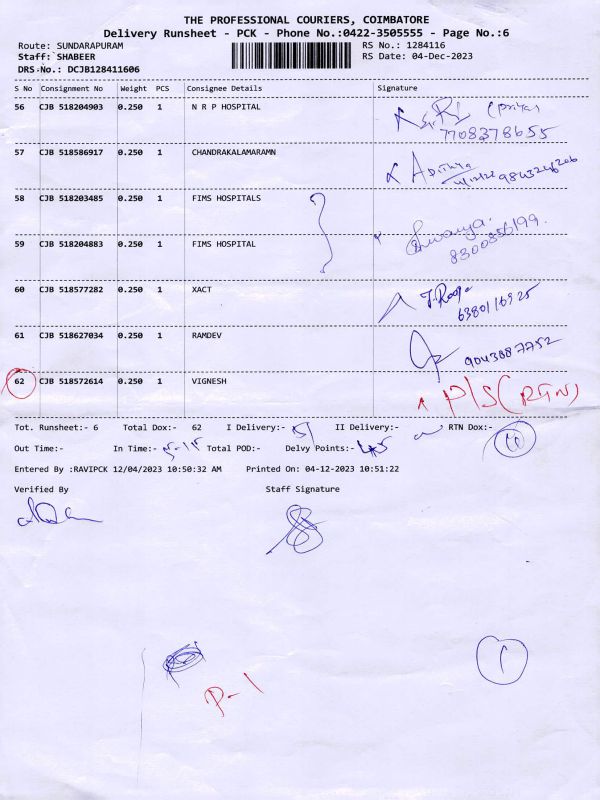 THE PROFESSIONAL COURIERS, COIMBATORE
Delivery Runsheet - PCK - Phone No.:0422-3505555 - Page No.:6
Route: SUNDARAPURAM RS No.: 1284116
Staff: SHABEER RS Date: 04-Dec-2023
DRS No.: DCJB128411606
S No Consignment No Weight PCS Consignee Details Signature
56 CJB 518204903 0.250 1 N R P HOSPITAL
(priya)
7708378655
57 CJB 518586917 0.250 1 CHANDRAKALAMARAMN
Adithya
9843246206
58 CJB 518203485 0.250 1 FIMS HOSPITALS
59 CJB 518204883 0.250 1 FIMS HOSPITAL
8300856199.
60 CJB 518577282 0.250 1 XACT J.Roopa
6380116925
61 CJB 518627034 0.250 1 RAMDEV
9043887752
62 CJB 518572614 0.250 1 VIGNESH P/S (RTN)
Tot. Runsheet:- 6 Total Dox:- 62 I Delivery:- 51 II Delivery:- RTN Dox:-
Out Time:- In Time:- 5-15 Total POD:- Delvy Points:- 45
Entered By :RAVIPCK 12/04/2023 10:50:32 AM Printed On: 04-12-2023 10:51:22
Verified By Staff Signature
1
P-1